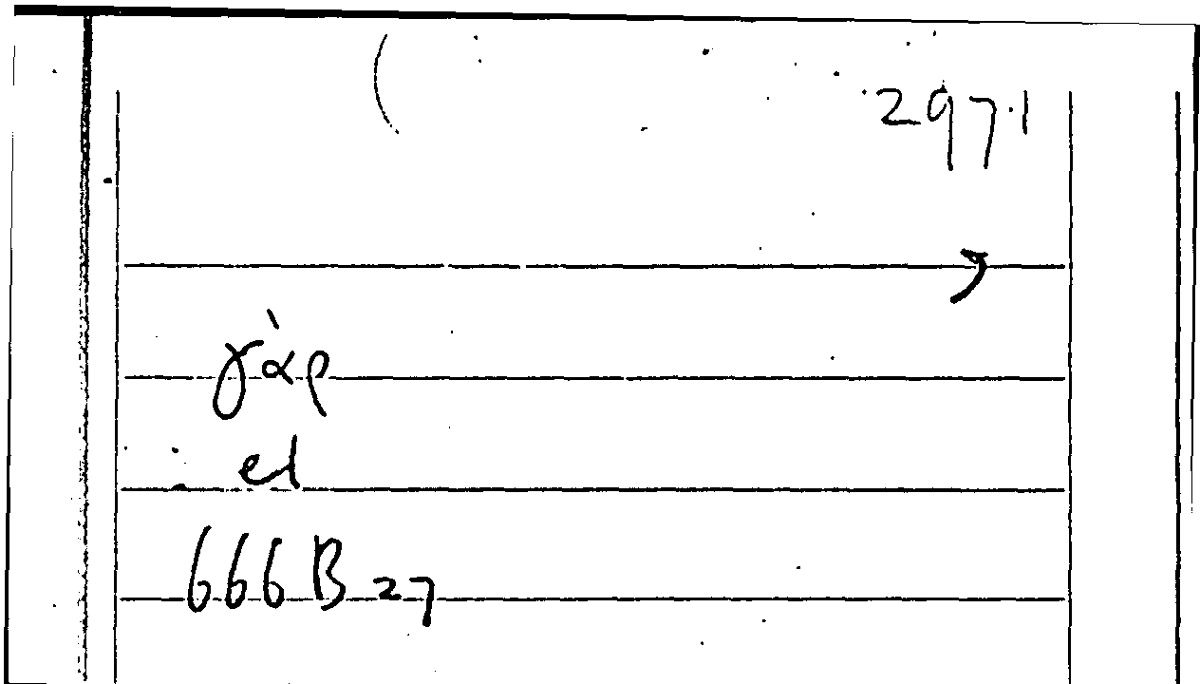 297.1
γὰρ
el
666B 27